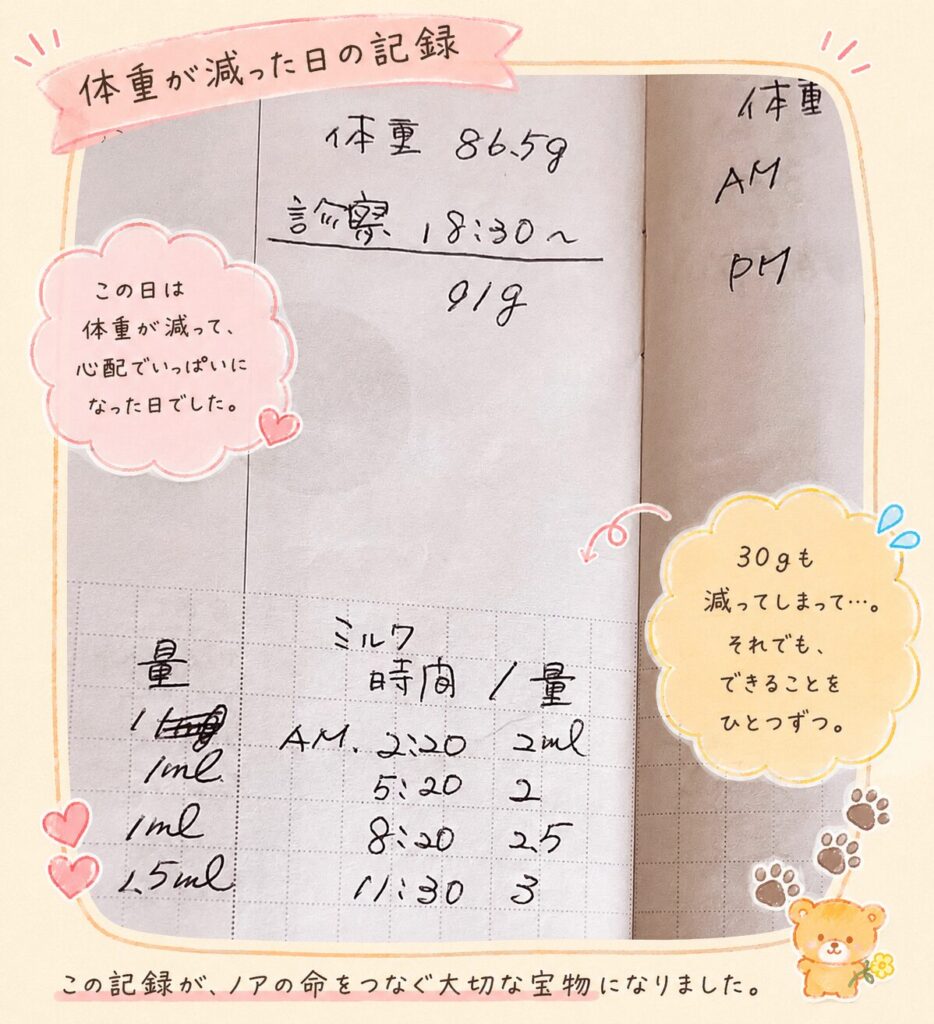 体重が減った日の記録
体重 86.5g
診察 18:30~
91g
体重
AM
PM
この日は
体重が減って、
心配でいっぱいに
なった日でした。
30gも
減ってしまって…。
それでも、
できることを
ひとつずつ。
量
1ml
1ml
1.5ml
ミルク
時間 / 量
AM. 2:20 2ml
5:20 2
8:20 2.5
11:30 3
この記録が、ノアの命をつなぐ大切な宝物になりました。